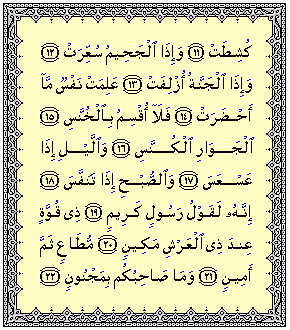 كُشِطَتْ ﴿١١﴾ وَإِذَا ٱلْجَحِيمُ سُعِّرَتْ ﴿١٢﴾
وَإِذَا ٱلْجَنَّةُ أُزْلِفَتْ ﴿١٣﴾ عَلِمَتْ نَفْسٌ مَّآ
أَحْضَرَتْ ﴿١٤﴾ فَلَآ أُقْسِمُ بِٱلْخُنَّسِ ﴿١٥﴾
ٱلْجَوَارِ ٱلْكُنَّسِ ﴿١٦﴾ وَٱلَّيْلِ إِذَا
عَسْعَسَ ﴿١٧﴾ وَٱلصُّبْحِ إِذَا تَنَفَّسَ ﴿١٨﴾
إِنَّهُۥ لَقَوْلُ رَسُولٍ كَرِيمٍ ﴿١٩﴾ ذِى قُوَّةٍ
عِندَ ذِى ٱلْعَرْشِ مَكِينٍ ﴿٢٠﴾ مُّطَاعٍ ثَمَّ
أَمِينٍ ﴿٢١﴾ وَمَا صَاحِبُكُم بِمَجْنُونٍ ﴿٢٢﴾